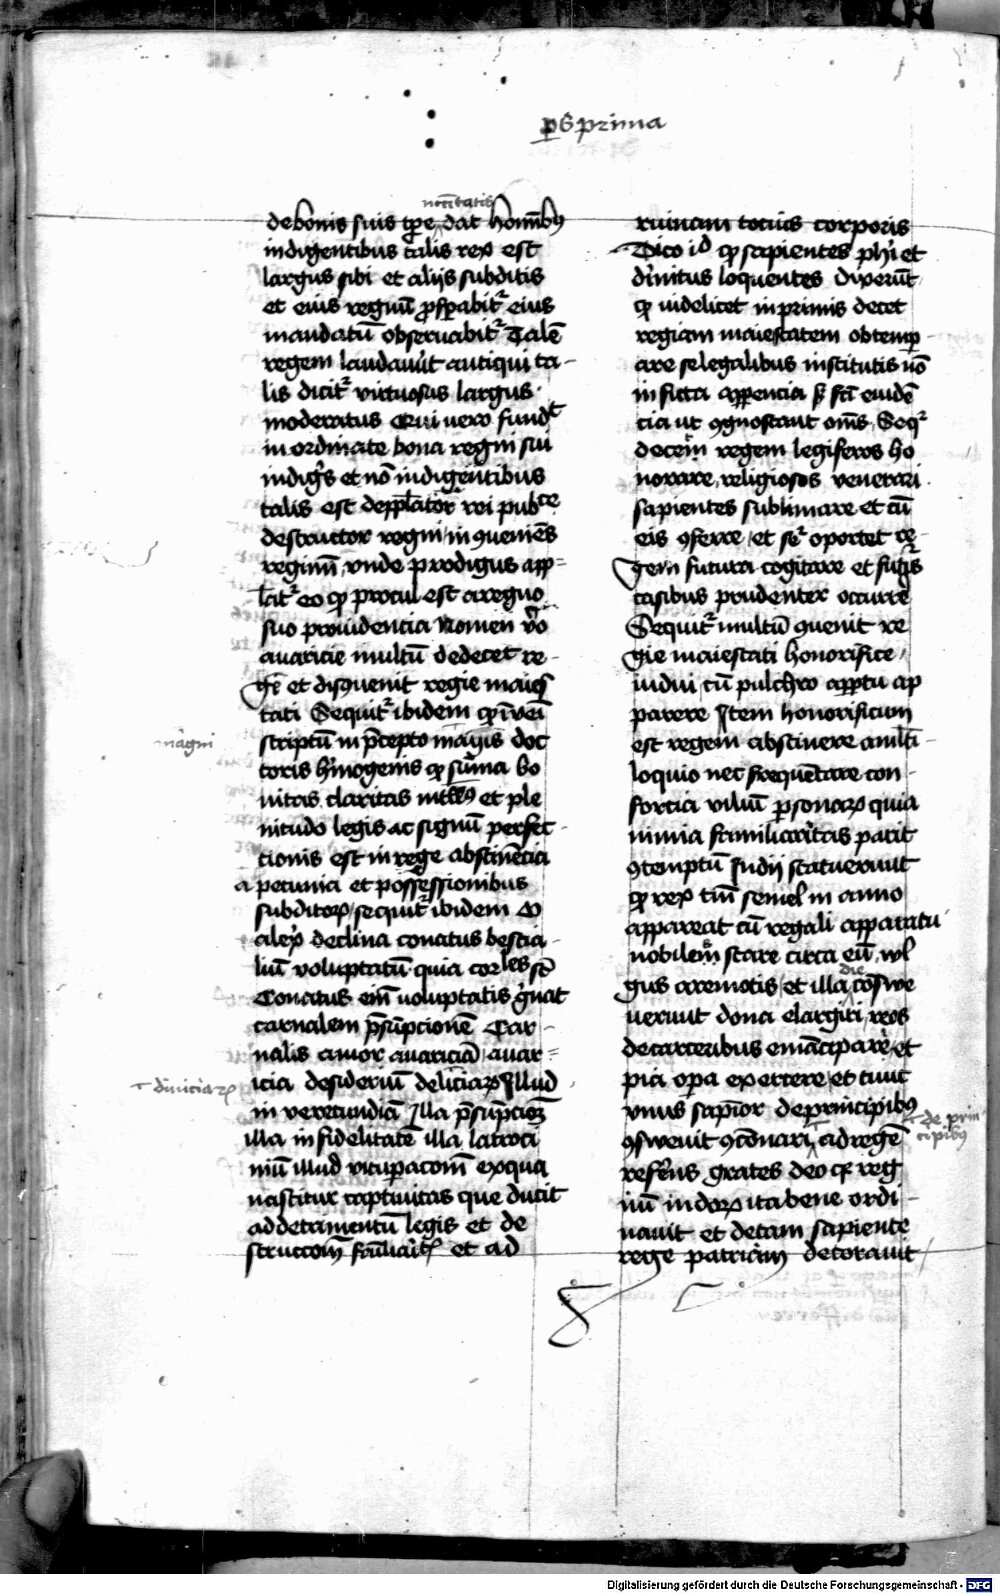 ps prima
necessitatis
de bonis suis tpe dat homibus
indigentibus talis rex est
largus sibi et aliis subditis
et eius regnū prospabitr eius
mandatū obseruabitr Talē
regem laudauit antiqui ta-
lis dicitr virtuosus largus
moderatus Qui vero fundit
in ordinate bona regni sui
indigs et nō indigentibus
talis est depplator rei publice
destructor regni in queniēs
regimī vnde prodigus app-
latr eo qp procul est a regno
suo prouidencia Nomen vo
auaricie multū dedecet re-
gē et disquenit regie maies
tati Sequitr ibidem qp inueni
magni
scriptū in pcepto maguis doc
toris hmogenis qp sūma bo
nitas claritas intllus et ple
nitudo legis ac signū perfec-
tionis est in rege abstinēcia
a pecunia et possessionibus
subditorꝝ sequitr ibidem O
alexr declina conatus bestia-
liū voluptatū quia corles st
Conatus eīm voluptatis gnat
carnalem psūpcionē Car-
nalis amor auariciā auar-
diuiciarꝝ
icia desideriū deliciarꝝ Illud
in verecundiā Illa psūpcioꝫ
illa in fidelitatē illa latroci
niū illud vitupacom ex qua
nascitur captiuitas que ducit
ad detrimentū legis et de
structiom familiaritꝭ et ad
ruinam tocius corporis
Dico id qp sapientes phi et
diuinitus loquentes dixerūt
qp videlicet in primis decet
regiam maiestatem obtemp-
are se legalibus institutis nō
in ficta apparencia s fti euidē
cia ut cognoscant oms Seqr
decem regem legiferos ho
norare religiosos venerari
sapientes sublimare et cū
eis conferre et sr oportet re-
gem futura cogitare et futuris
casibus prudenter occurre
Sequitr multū quenit re
gie maiestati honorifice
indui cū pulchro apparatu ap
parere Item honorificum
est regem abstinere a multi-
loquio nec frequētare con-
sortia viliū psonarꝝ quia
nimia familiaritas parit
contemptū Indii statuerunt
qp rex tm semel in anno
appareat cū regali apparatu
nobilem stare circa eū wl
die
gus a remotis et illa cosswe
uerunt dona elargiri reos
de carceribus emācipare et
pia opa exercere et tunc
vnus sapior de principibus
de prin
cipibus
consweuit concionari ad regē
referens grates deo qp reg
nū indorꝝ ita bene ordi-
nauit et de tam sapiente
rege patriam decorauit